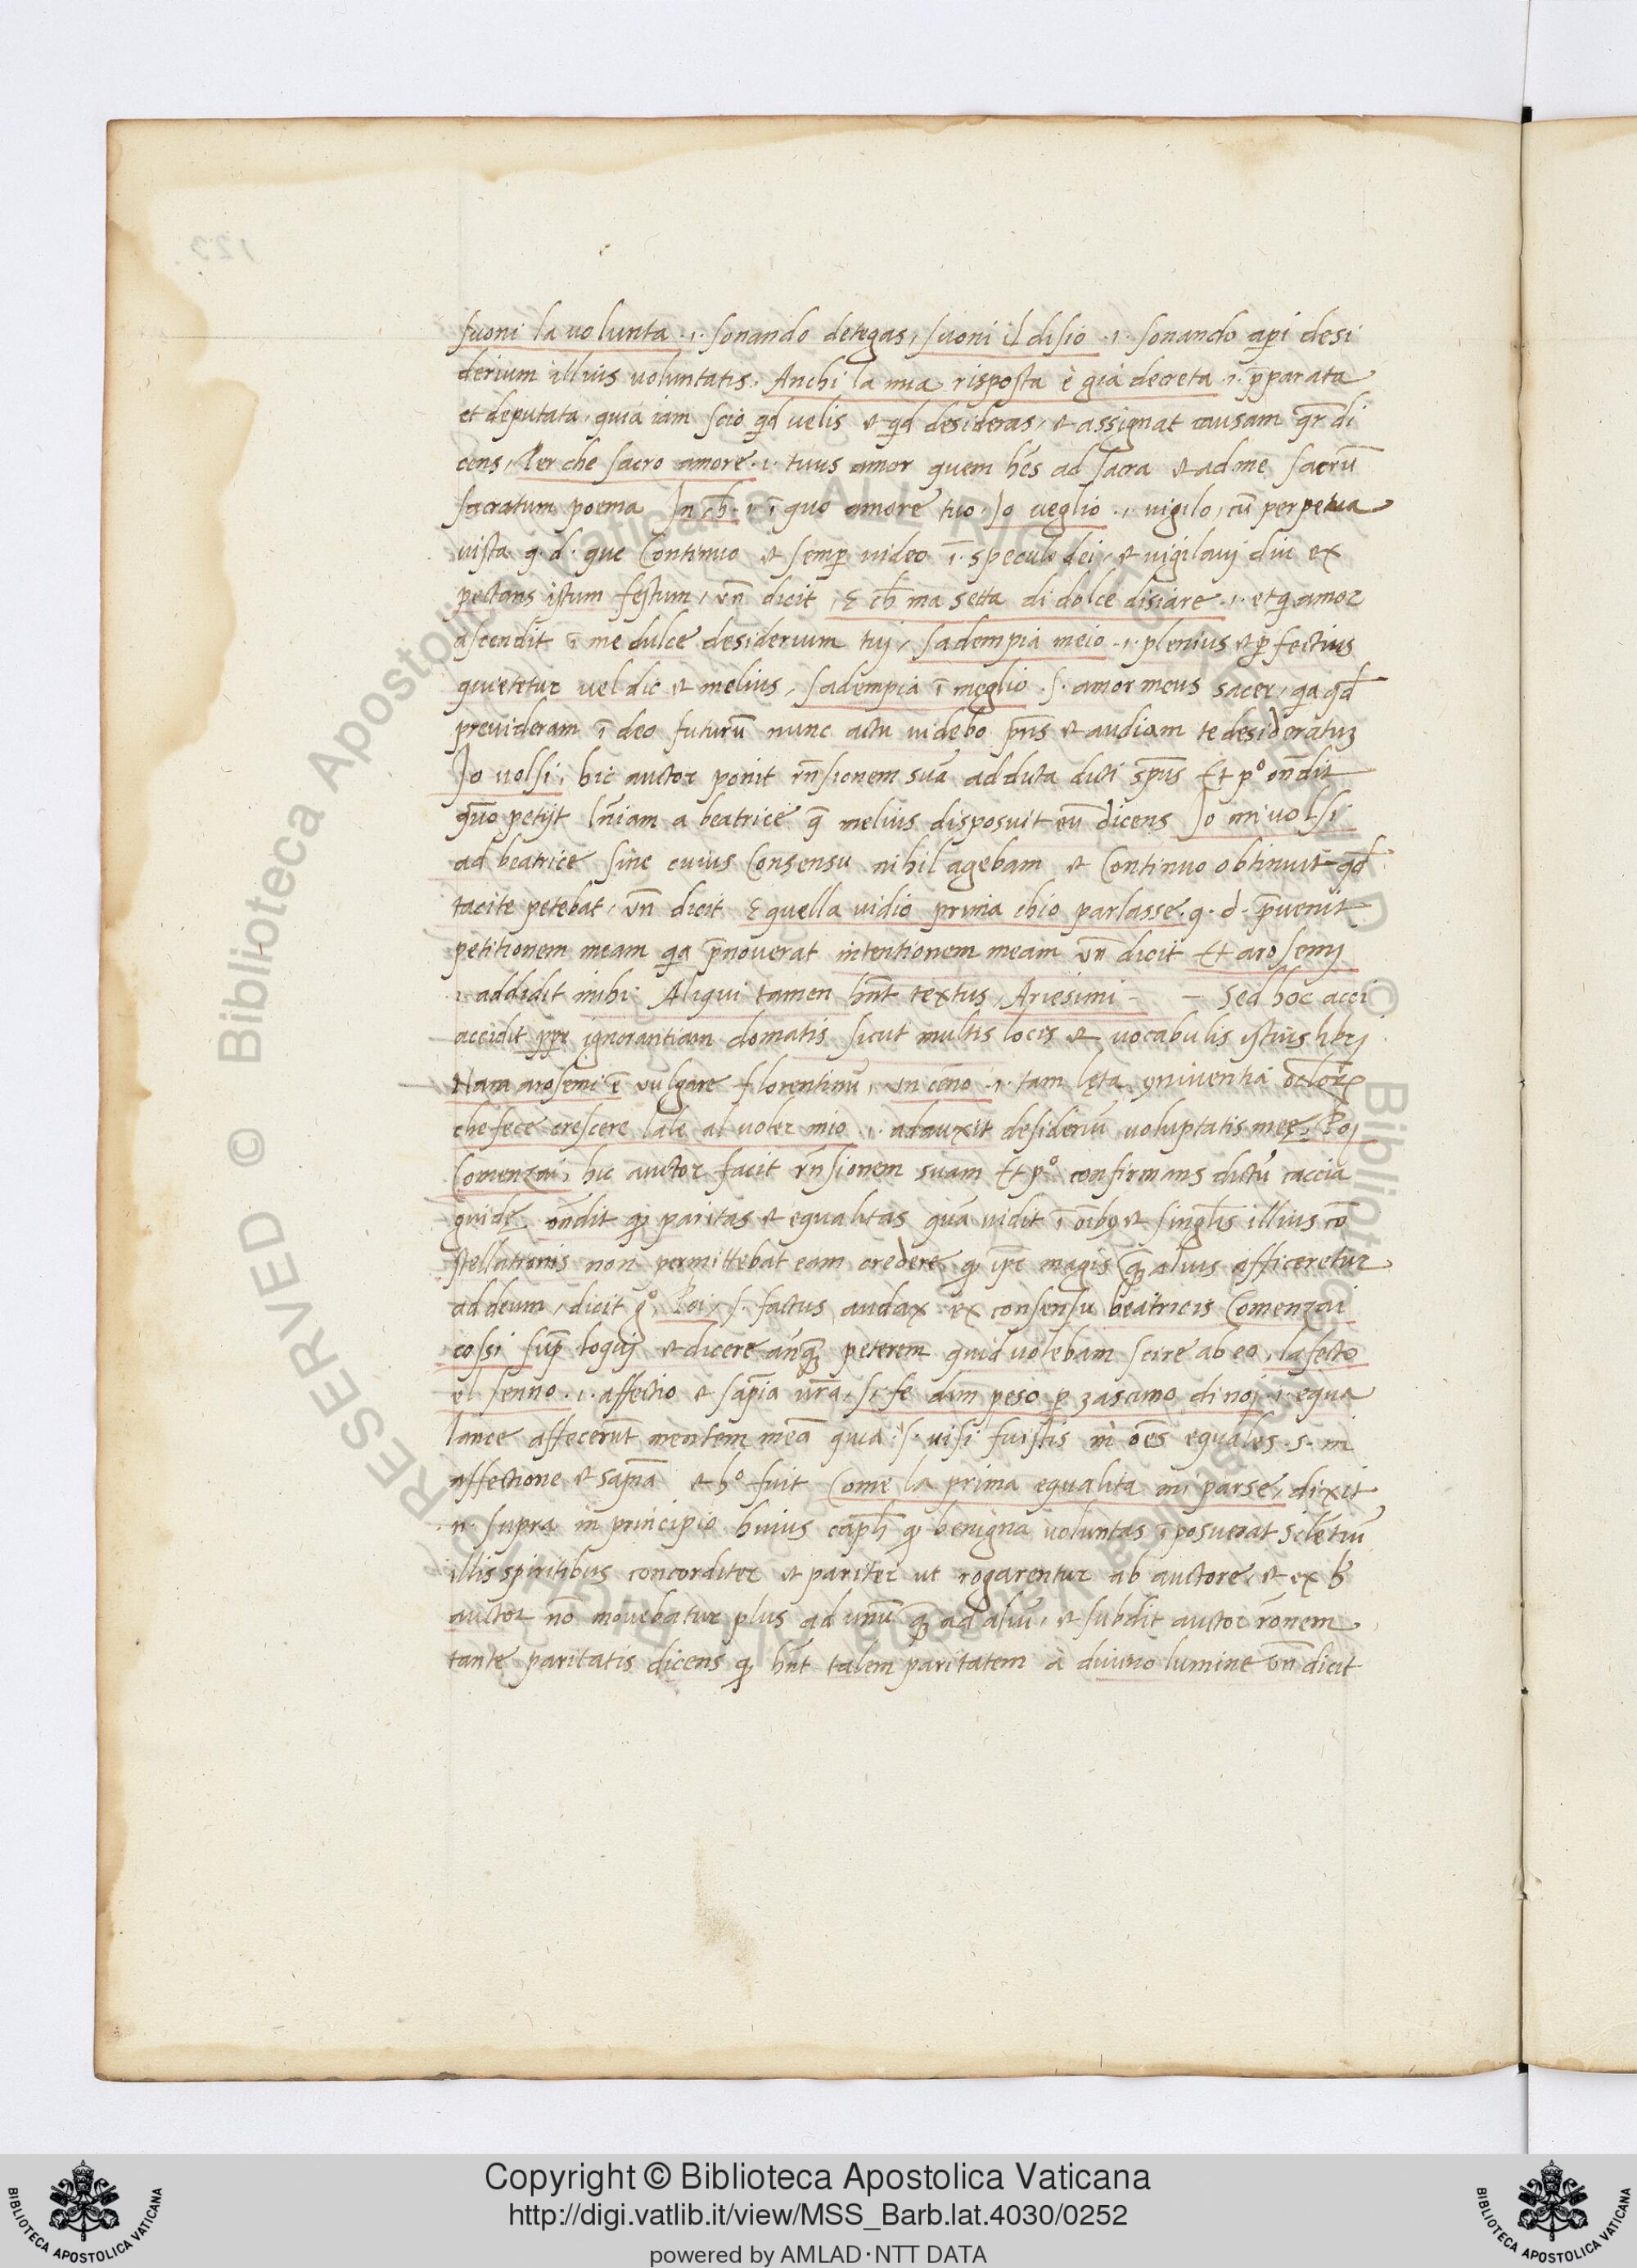 suoni la volunta .i. sonando detegas, suoni il disio .i. sonando api desi
derium illius voluntatis. Anchi la mia risposta è gia decreta .i. p̄parata
et deputata, quia iam scio qđ velis et qđ desideras, et assignat causam qr̄ di
cens, Per che sacro amore .i. tuus amor quem hēs ad sacra et ad me sacrū
sacratum poema In ch̄ .i. ī quo amore tuo. Io veglio .i. vigilo, cū perpetua
vista q. d. que Continuo et semp̄ video ī speculo dei, et vigilavj diu ex
pectans istum festum, vn̄ dicit, E ch̄ ma setta di dolce disiare .i. et q̄ amor
ascendit ī me dulce desiderium tuj, sadempia meio .i. plenius et pfectius
quietetur vel dic et melius, sadempia ī meglio .s. amor meus sacer, qa qđ
previderam ī deo futurū nunc actu videbo pn̄s et audiam te desideratuȝ
Io volsi, hic auctor ponit rn̄sionem suā ad dicta dicti spūs Et pº on̄dit
quō petijt ln̄iam a beatrice q̄ melius disposuit eū dicens Io mi volsi
ad beatrice sine cuius Consensu nihil agebam et Continuo obtinuit qđ
tacite petebat, vn̄ dicit E quella vidio prima chio parlasse. q. d. p̄venit
petitionem meam qa p̄noverat intentionem meam vn̄ dicit Et arosemj
.i. addidit mihi. Aliqui tamen hn̄t textus, Ariesimi - - Sed hoc acci
accidit ppr̄ ignorantiam domatis sicut multis locis et vocabulis istius librj
Nam arosemi ē vulgare florentinū, vn ceno .i. tam lęta 9niventia oclorꝝ
che fece crescere lale al voler mio .i. adauxit desideriū voluptatis meę. Poj
Comenzai, hic auctor facit rn̄sionem suam Et pº confirmans dictū caccia
guidę on̄dit qꝫ paritas et equalitas quā vidit ī oībꝯ et singl̄is illius cō
stellationis non permittebat eam credere qꝫ ip̄e magis qꝫ alius afficeretur
ad deum, dicit gº, Poi, s. factus audax ex consensu beatricis Comenzai
cossi sup̄ loquj et dicere an̄qꝫ peterem quid volebam scire ab eo, lafecto
el senno .i. affectio et sap̄ia vr̄a, si fe dun peso p̄ zascuno di noj .i. equa
lance affecerūt mentem meā quia .s. visi fuistis m̄ ōes equales .s. in
affectione et sapn̄a et hº fuit Come la prima equalita mi parse, dixit
.n. supra in principio huius caph̄ qꝫ benigna voluntas īposuerat silētiū
illis spiritibus concorditer et pariter ut rogarentur ab auctore, et ex h̄
auctor nō movebatur plus ad unū qꝫ ad aliū, et subdit auctor rōnem
tante paritatis dicens qꝫ hn̄t talem paritatem à divino lumine vn̄ dicit
Copyright © Biblioteca Apostolica Vaticana
http://digi.vatlib.it/view/MSS_Barb.lat.4030/0252
powered by AMLAD·NTT DATA
BIBLIOTECA APOSTOLICA VATICANA
BIBLIOTECA APOSTOLICA VATICANA